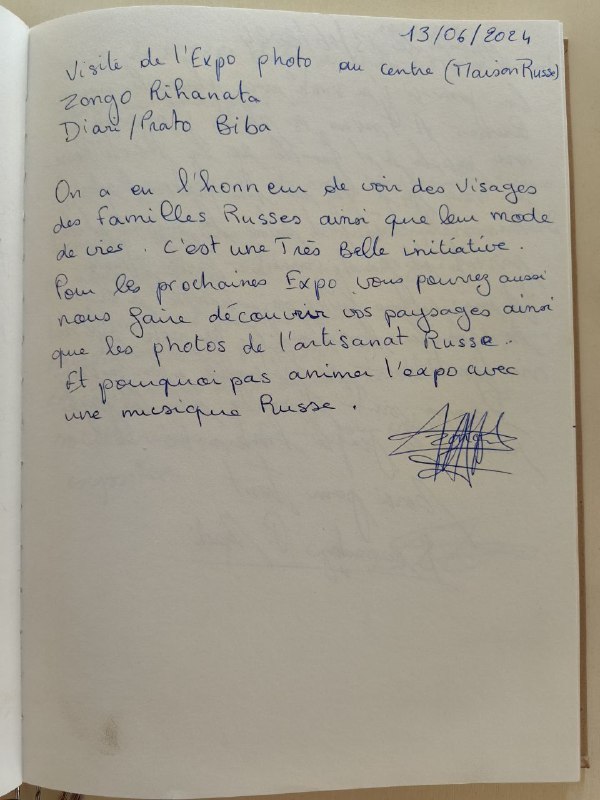 13/06/2024
Visite de l'Expo photo au centre (Maison Russe)
Zongo Rihanata
Diari/Prato Biba
On a eu l'honneur de voir des Visages
des familles Russes ainsi que leur mode
de vies. C'est une Très Belle initiative.
Pour les prochaines Expo vous pourrez aussi
nous faire découvrir vos paysages ainsi
que les photos de l'artisanat Russe.
Et pourquoi pas animer l'expo avec
une musique Russe.